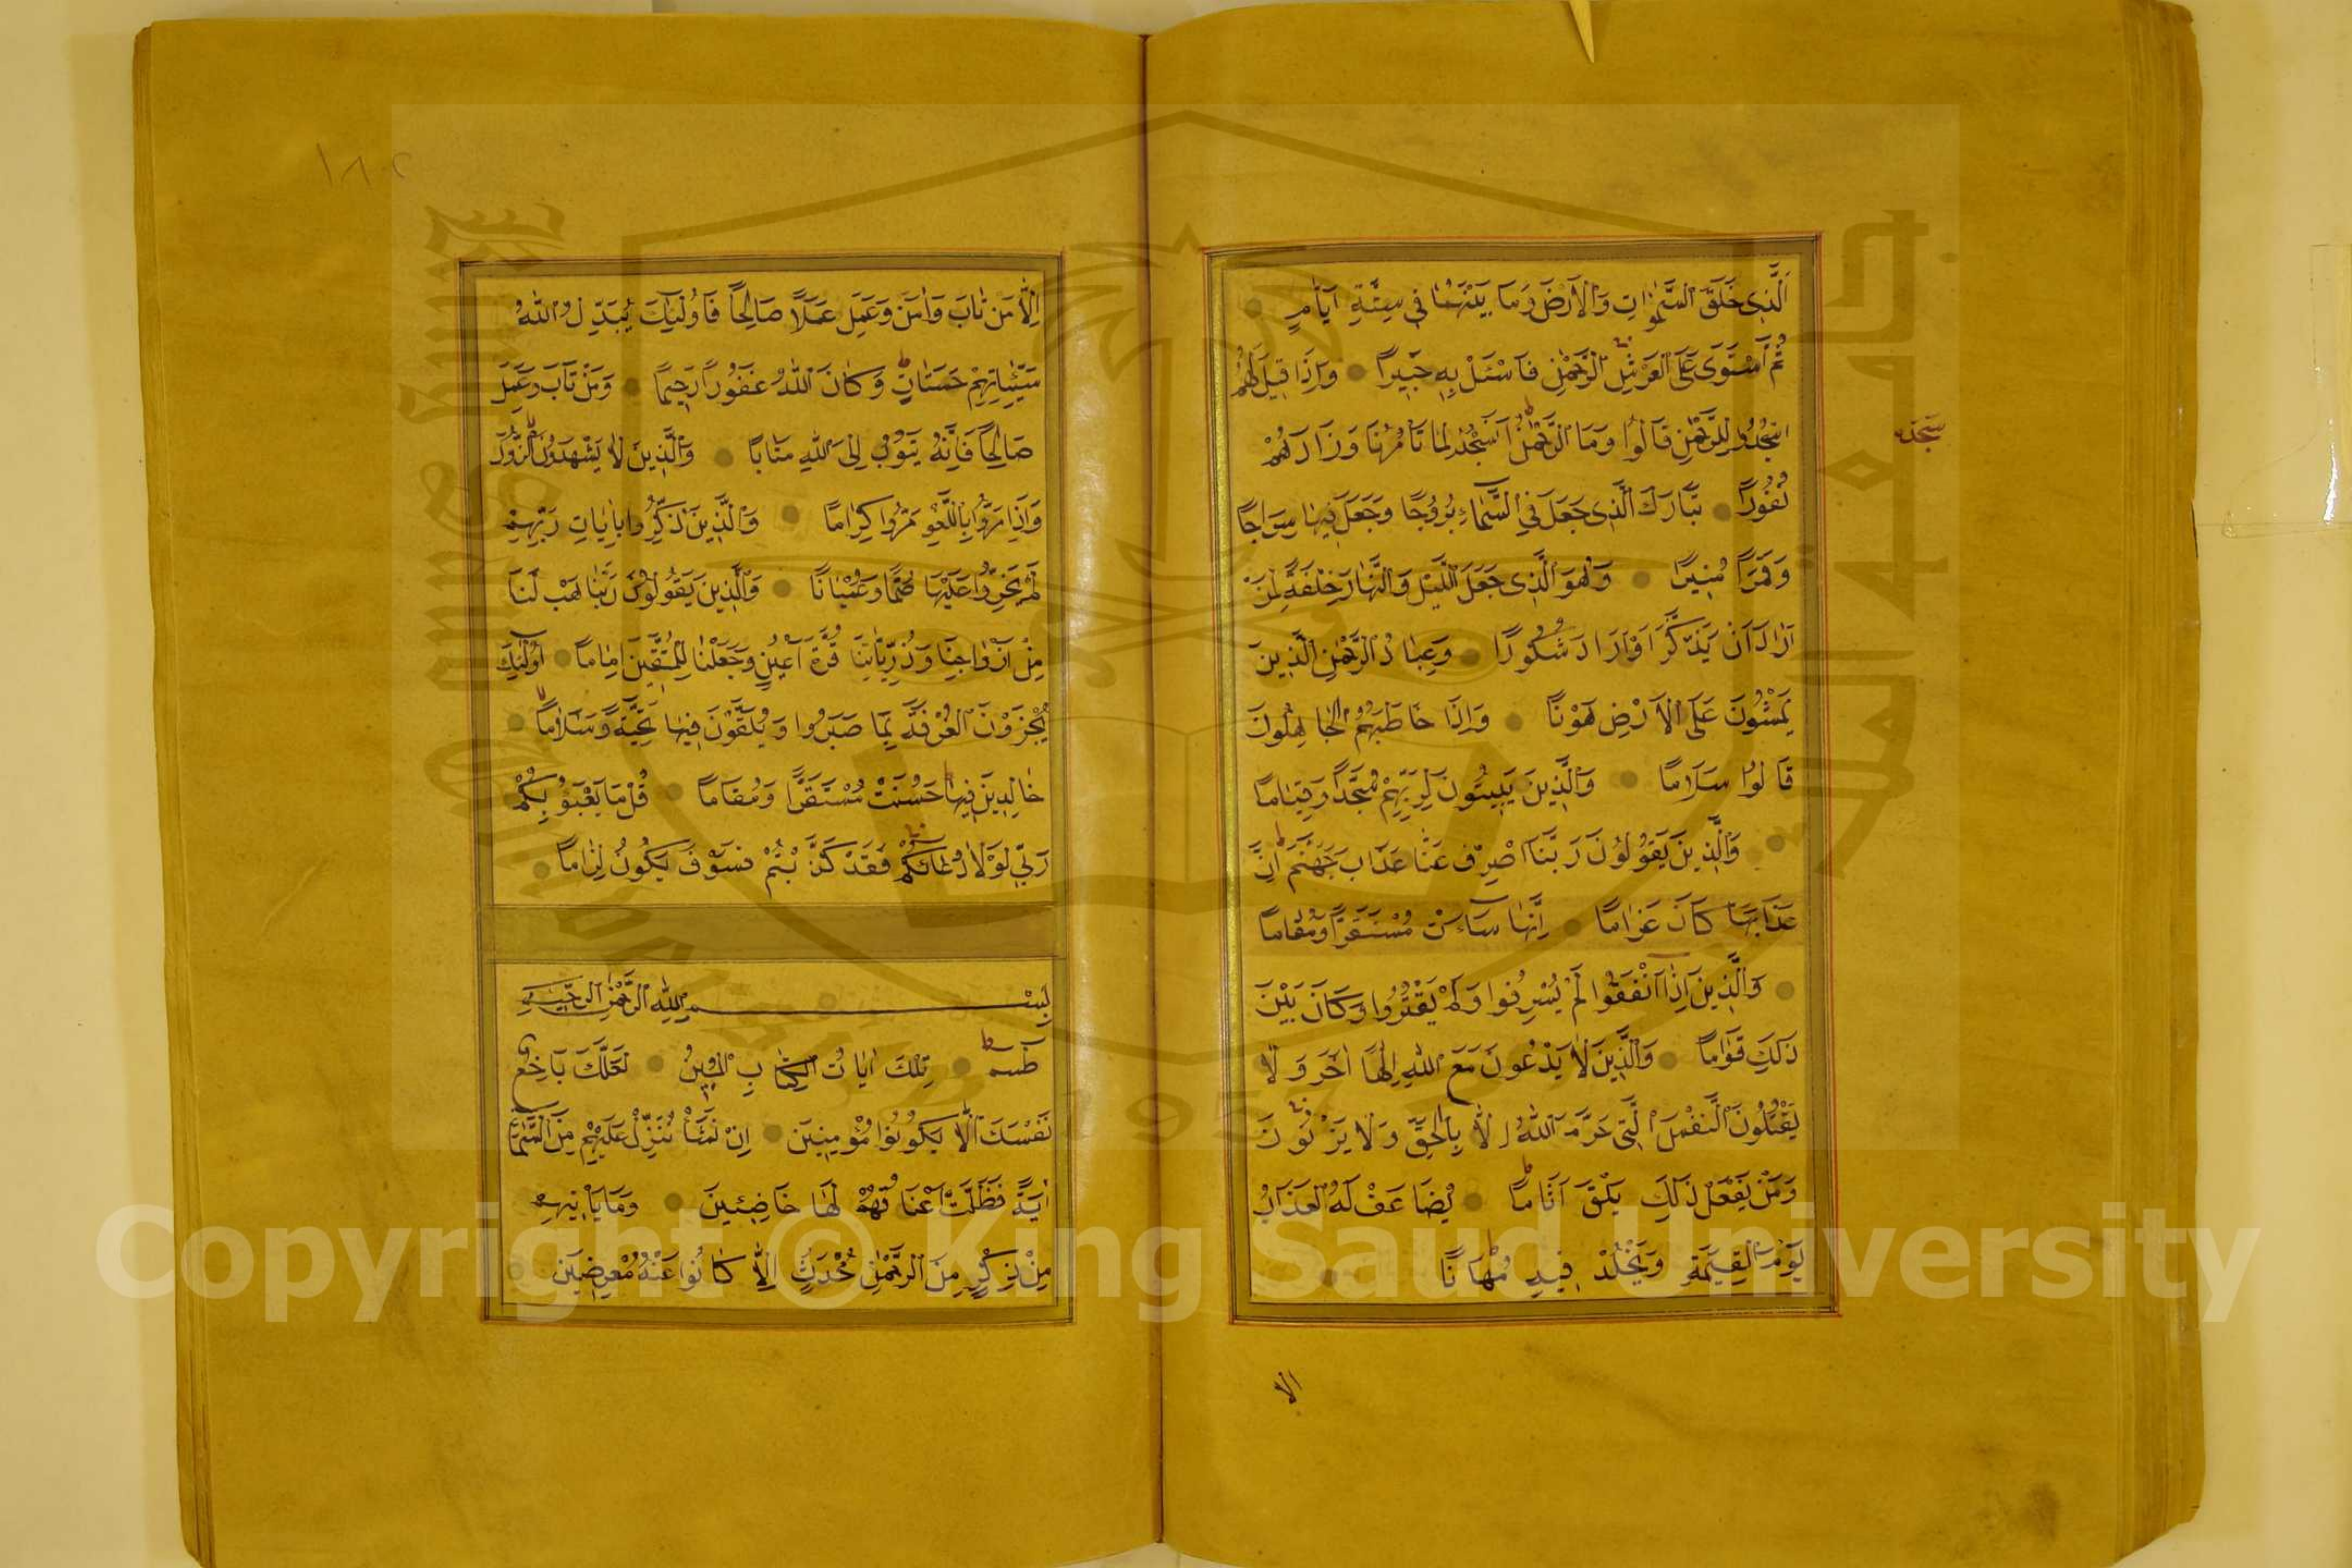 اَلَّذِى خَلَقَ السَّمٰوَاتِ وَالْاَرْضَ وَمَا بَيْنَهُمَا فِى سِتَّةِ اَيَّامٍ
ثُمَّ اسْتَوَى عَلَى الْعَرْشِ الرَّحْمٰنِ فَاسْئَلْ بِهِ خَبِيرًا وَاِذَا قِيلَ لَهُمُ
اسْجُدُوا لِلرَّحْمٰنِ قَالُوا وَمَا الرَّحْمٰنُ اَنَسْجُدُ لِمَا تَأْمُرُنَا وَزَادَهُمْ
سَجْدَه
نُفُورًا تَبَارَكَ الَّذِى جَعَلَ فِى السَّمَاءِ بُرُوجًا وَجَعَلَ فِيهَا سِرَاجًا
وَقَمَرًا مُنِيرًا وَهُوَ الَّذِى جَعَلَ الَّيْلَ وَالنَّهَارَ خِلْفَةً لِمَنْ
اَرَادَ اَنْ يَذَّكَّرَ اَوْ اَرَادَ شُكُورًا وَعِبَادُ الرَّحْمٰنِ الَّذِينَ
يَمْشُونَ عَلَى الْاَرْضِ هَوْنًا وَاِذَا خَاطَبَهُمُ الْجَاهِلُونَ
قَالُوا سَلَامًا وَالَّذِينَ يَبِيتُونَ لِرَبِّهِمْ سُجَّدًا وَقِيَامًا
وَالَّذِينَ يَقُولُونَ رَبَّنَا اصْرِفْ عَنَّا عَذَابَ جَهَنَّمَ اِنَّ
عَذَابَهَا كَانَ غَرَامًا اِنَّهَا سَاءَتْ مُسْتَقَرًّا وَمُقَامًا
وَالَّذِينَ اِذَا اَنْفَقُوا لَمْ يُسْرِفُوا وَلَمْ يَقْتُرُوا وَكَانَ بَيْنَ
ذَلِكَ قَوَامًا وَالَّذِينَ لَا يَدْعُونَ مَعَ اللهِ اِلٰهًا اٰخَرَ وَلَا
يَقْتُلُونَ النَّفْسَ الَّتِى حَرَّمَ اللهُ اِلَّا بِالْحَقِّ وَلَا يَزْنُونَ
وَمَنْ يَفْعَلْ ذَلِكَ يَلْقَ اَثَامًا يُضَاعَفْ لَهُ الْعَذَابُ
يَوْمَ الْقِيٰمَةِ وَيَخْلُدْ فِيهِ مُهَانًا
الا
١٨٢
اِلَّا مَنْ تَابَ وَاٰمَنَ وَعَمِلَ عَمَلًا صَالِحًا فَاُولٰئِكَ يُبَدِّلُ اللهُ
سَيِّئَاتِهِمْ حَسَنَاتٍ وَكَانَ اللهُ غَفُورًا رَحِيمًا وَمَنْ تَابَ وَعَمِلَ
صَالِحًا فَاِنَّهُ يَتُوبُ اِلَى اللهِ مَتَابًا وَالَّذِينَ لَا يَشْهَدُونَ الزُّورَ
وَاِذَا مَرُّوا بِاللَّغْوِ مَرُّوا كِرَامًا وَالَّذِينَ اِذَا ذُكِّرُوا بِاٰيَاتِ رَبِّهِمْ
لَمْ يَخِرُّوا عَلَيْهَا صُمًّا وَعُمْيَانًا وَالَّذِينَ يَقُولُونَ رَبَّنَا هَبْ لَنَا
مِنْ اَزْوَاجِنَا وَذُرِّيَّاتِنَا قُرَّةَ اَعْيُنٍ وَجَعَلْنَا لِلْمُتَّقِينَ اِمَامًا اُولٰئِكَ
يُجْزَوْنَ الْغُرْفَةَ بِمَا صَبَرُوا وَيُلَقَّوْنَ فِيهَا تَحِيَّةً وَسَلَامًا
خَالِدِينَ فِيهَا حَسُنَتْ مُسْتَقَرًّا وَمُقَامًا قُلْ مَا يَعْبَؤُ بِكُمْ
رَبِّى لَوْلَا دُعَاؤُكُمْ فَقَدْ كَذَّبْتُمْ فَسَوْفَ يَكُونُ لِزَامًا
بِسْمِ اللهِ الرَّحْمٰنِ الرَّحِيمِ
طٰسم تِلْكَ اٰيَاتُ الْكِتَابِ الْمُبِينِ لَعَلَّكَ بَاخِعٌ
نَفْسَكَ اَلَّا يَكُونُوا مُؤْمِنِينَ اِنْ نَشَأْ نُنَزِّلْ عَلَيْهِمْ مِنَ السَّمَاءِ
اٰيَةً فَظَلَّتْ اَعْنَاقُهُمْ لَهَا خَاضِعِينَ وَمَا يَأْتِيهِمْ
مِنْ ذِكْرٍ مِنَ الرَّحْمٰنِ مُحْدَثٍ اِلَّا كَانُوا عَنْهُ مُعْرِضِينَ
Copyright © King Saud University